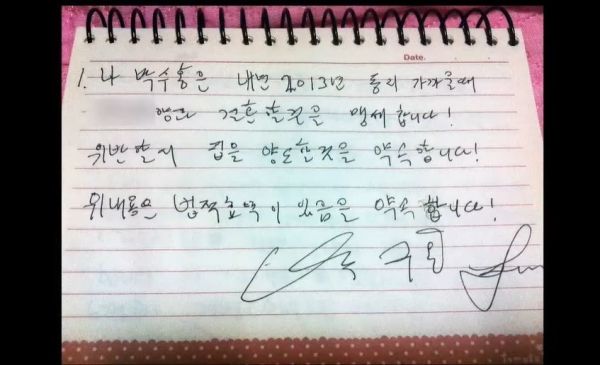 Date.
1. 나 박수홍은 내년 2013년 동리 가까울때
결혼할것을 맹세합니다!
위반할시 집을 양도할것을 약속합니다!
위내용은 법적효력이 있음을 약속합니다!
박수홍